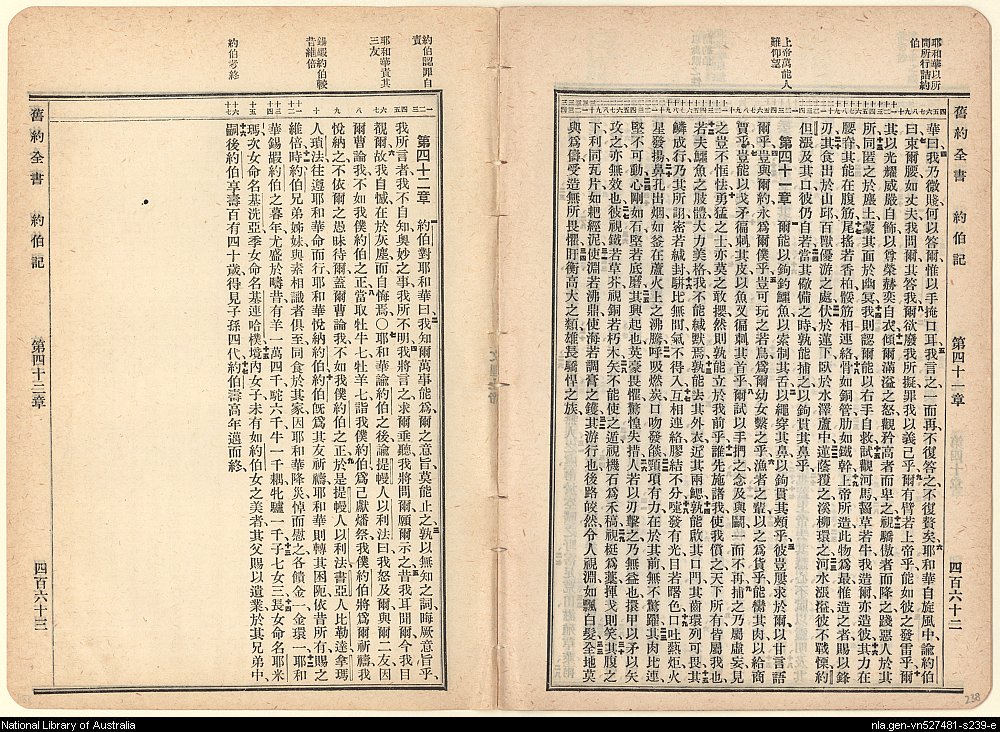 耶和華以所
問所行詰約
伯
上帝萬能人
難仰望
舊約全書 約伯記 第四十一章 四百六十二
華曰我乃微賤何以答爾惟以手掩口耳我言之一而再不復答之不復贅矣耶和華自旋風中諭約伯
曰束爾腰如丈夫我問爾其答我爾欲廢我所擬罪我以義己乎爾有臂若上帝乎能如彼之發雷乎爾
其以光耀威嚴自飾以尊榮赫奕自衣傾爾滿溢之怒觀於高者而卑之視驕傲者而降之踐惡人於其
所同匿之於塵土蒙其面於幽冥我則認爾能以右手自救試觀河馬齧草若牛我造爾亦造彼其力在
腰脊其能在腹筋尾搖若香柏髀筋相連絡骨如銅管肋如鐵幹上帝所造此物為最惟造之者賜以鋒
刃其食出於山邱百獸優游之處伏於蓮下臥於水澤蘆中蓮蔭覆之溪柳環之河水漲溢彼不戰慄約
但漲及其口彼仍自若當其儆備之時孰能捕之以鉤貫其鼻乎
第四十一章 爾能以鉤釣鱷魚以索制其舌以繩穿其鼻以鉤貫其頰乎彼豈屢求於爾以甘言語
爾乎豈與爾約永為爾僕乎豈可玩之若鳥為爾幼女繫之乎漁者之輩以之為貨乎能臠其肉以給商
賈乎豈能以戈矛徧刺其皮以魚叉徧刺其首乎爾試以手捫之念及與鬬一而不再捕之乃屬虛妄見
之豈不恇怯勇猛之士亦莫之敢攖然則孰能立於我前乎誰先施諸我使我償之天下所有皆屬我也
若夫鱷魚之肢體大力美格我不能緘默焉孰能去其外衣近其兩鰓孰能啟其口門其齒環列可畏
鱗成行乃其所詡密若緘封騈比無間氣不得入互相連絡膠結不分嚏發有光目若曙色口吐爇炬火
星發揚鼻孔出烟如釜在蘆火上之沸騰呼吸燃炭口吻發燄頸項有力在於其前無不驚躍其肉比連
堅不可動心剛如石堅若底磨其興起也英豪畏懼驚惶失措人若以刃擊之乃無益也擐甲以矛以矢
攻之亦無效也彼視鐵若草芥視銅若朽木矢不能使之遁視機石為禾稿視梃為藁揮戈則笑其腹之
下利同瓦片如耙經泥使淵若沸鼎使海若調膏之鑊其游行也後路皎然令人視淵如飄白髮全地莫
與為儔受造無所畏懼盱衡高大之類雄長驕悍之族
約伯認罪自
責
耶和華責其
三友
錫嘏約伯較
昔維倍
約伯考終
第四十二章 約伯對耶和華曰我知爾萬事能為爾之意旨莫能止之孰以無知之詞晦厥意旨乎
我所言者我不自知奧妙之事我所不明我將言之求爾垂聽我將問爾願爾示之昔我耳聞爾今我目
覩爾故我自憾在於灰塵而自悔焉○耶和華諭約伯之後諭提幔人以利法曰我怒及爾與爾二友因
爾曹論我不如我僕約伯之正當取牡牛七牡羊七詣我僕約伯為己獻燔祭我僕約伯將為爾祈禱我
悅納之不依爾之愚昧待爾蓋爾曹論我不如我僕約伯之正於是提幔人以利法書亞人比勒達拿瑪
人瑣法往遵耶和華命而行耶和華悅納約伯約伯既為其友祈禱耶和華則轉其困阨依昔所有賜之
維倍時約伯兄弟姊妹與素相識者俱至同食於其家因耶和華降災悼而慰之各饋金一金環一耶和
華錫嘏約伯之暮年尤盛於疇昔有羊一萬四千駝六千牛一千耦牝驢一千子七女三長女命名耶米
瑪次女命名基洗亞季女命名基連哈樸境內女子未有如約伯女之美者其父賜以遺業於其兄弟中
嗣後約伯享壽百有四十歲得見子孫四代約伯壽高年邁而終
舊約全書 約伯記 第四十二章 四百六十三
238
National Library of Australia
nla.gen-vn527481-s239-e